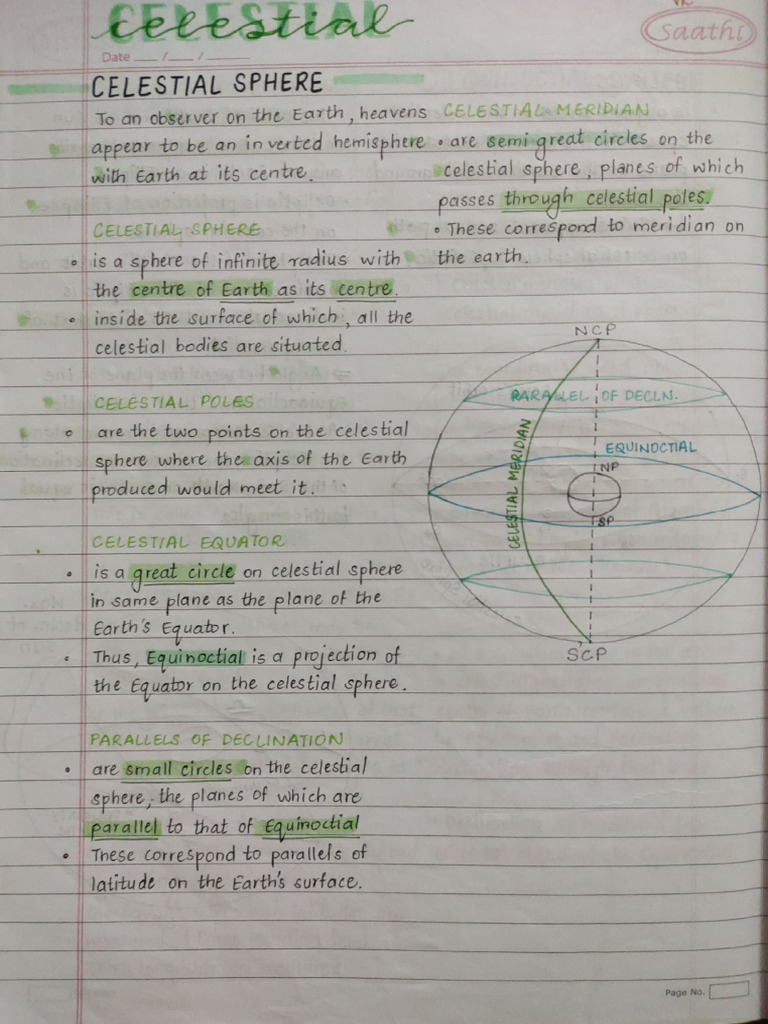 CELESTIAL
celestial
Saathi
Date ___ / ___ / ______
CELESTIAL SPHERE
To an observer on the Earth, heavens
appear to be an inverted hemisphere
with Earth at its centre.
CELESTIAL SPHERE
• is a sphere of infinite radius with
the centre of Earth as its centre.
• inside the surface of which, all the
celestial bodies are situated.
CELESTIAL POLES
• are the two points on the celestial
sphere where the axis of the Earth
produced would meet it.
CELESTIAL EQUATOR
• is a great circle on celestial sphere
in same plane as the plane of the
Earth's Equator.
• Thus, Equinoctial is a projection of
the Equator on the celestial sphere.
PARALLELS OF DECLINATION
• are small circles on the celestial
sphere, the planes of which are
parallel to that of Equinoctial
• These correspond to parallels of
latitude on the Earth's surface.
CELESTIAL MERIDIAN
• are semi great circles on the
celestial sphere, planes of which
passes through celestial poles.
• These correspond to meridian on
the earth.
NCP
PARALLEL OF DECLN.
EQUINOCTIAL
NP
CELESTIAL MERIDIAN
SP
SCP
Page No.